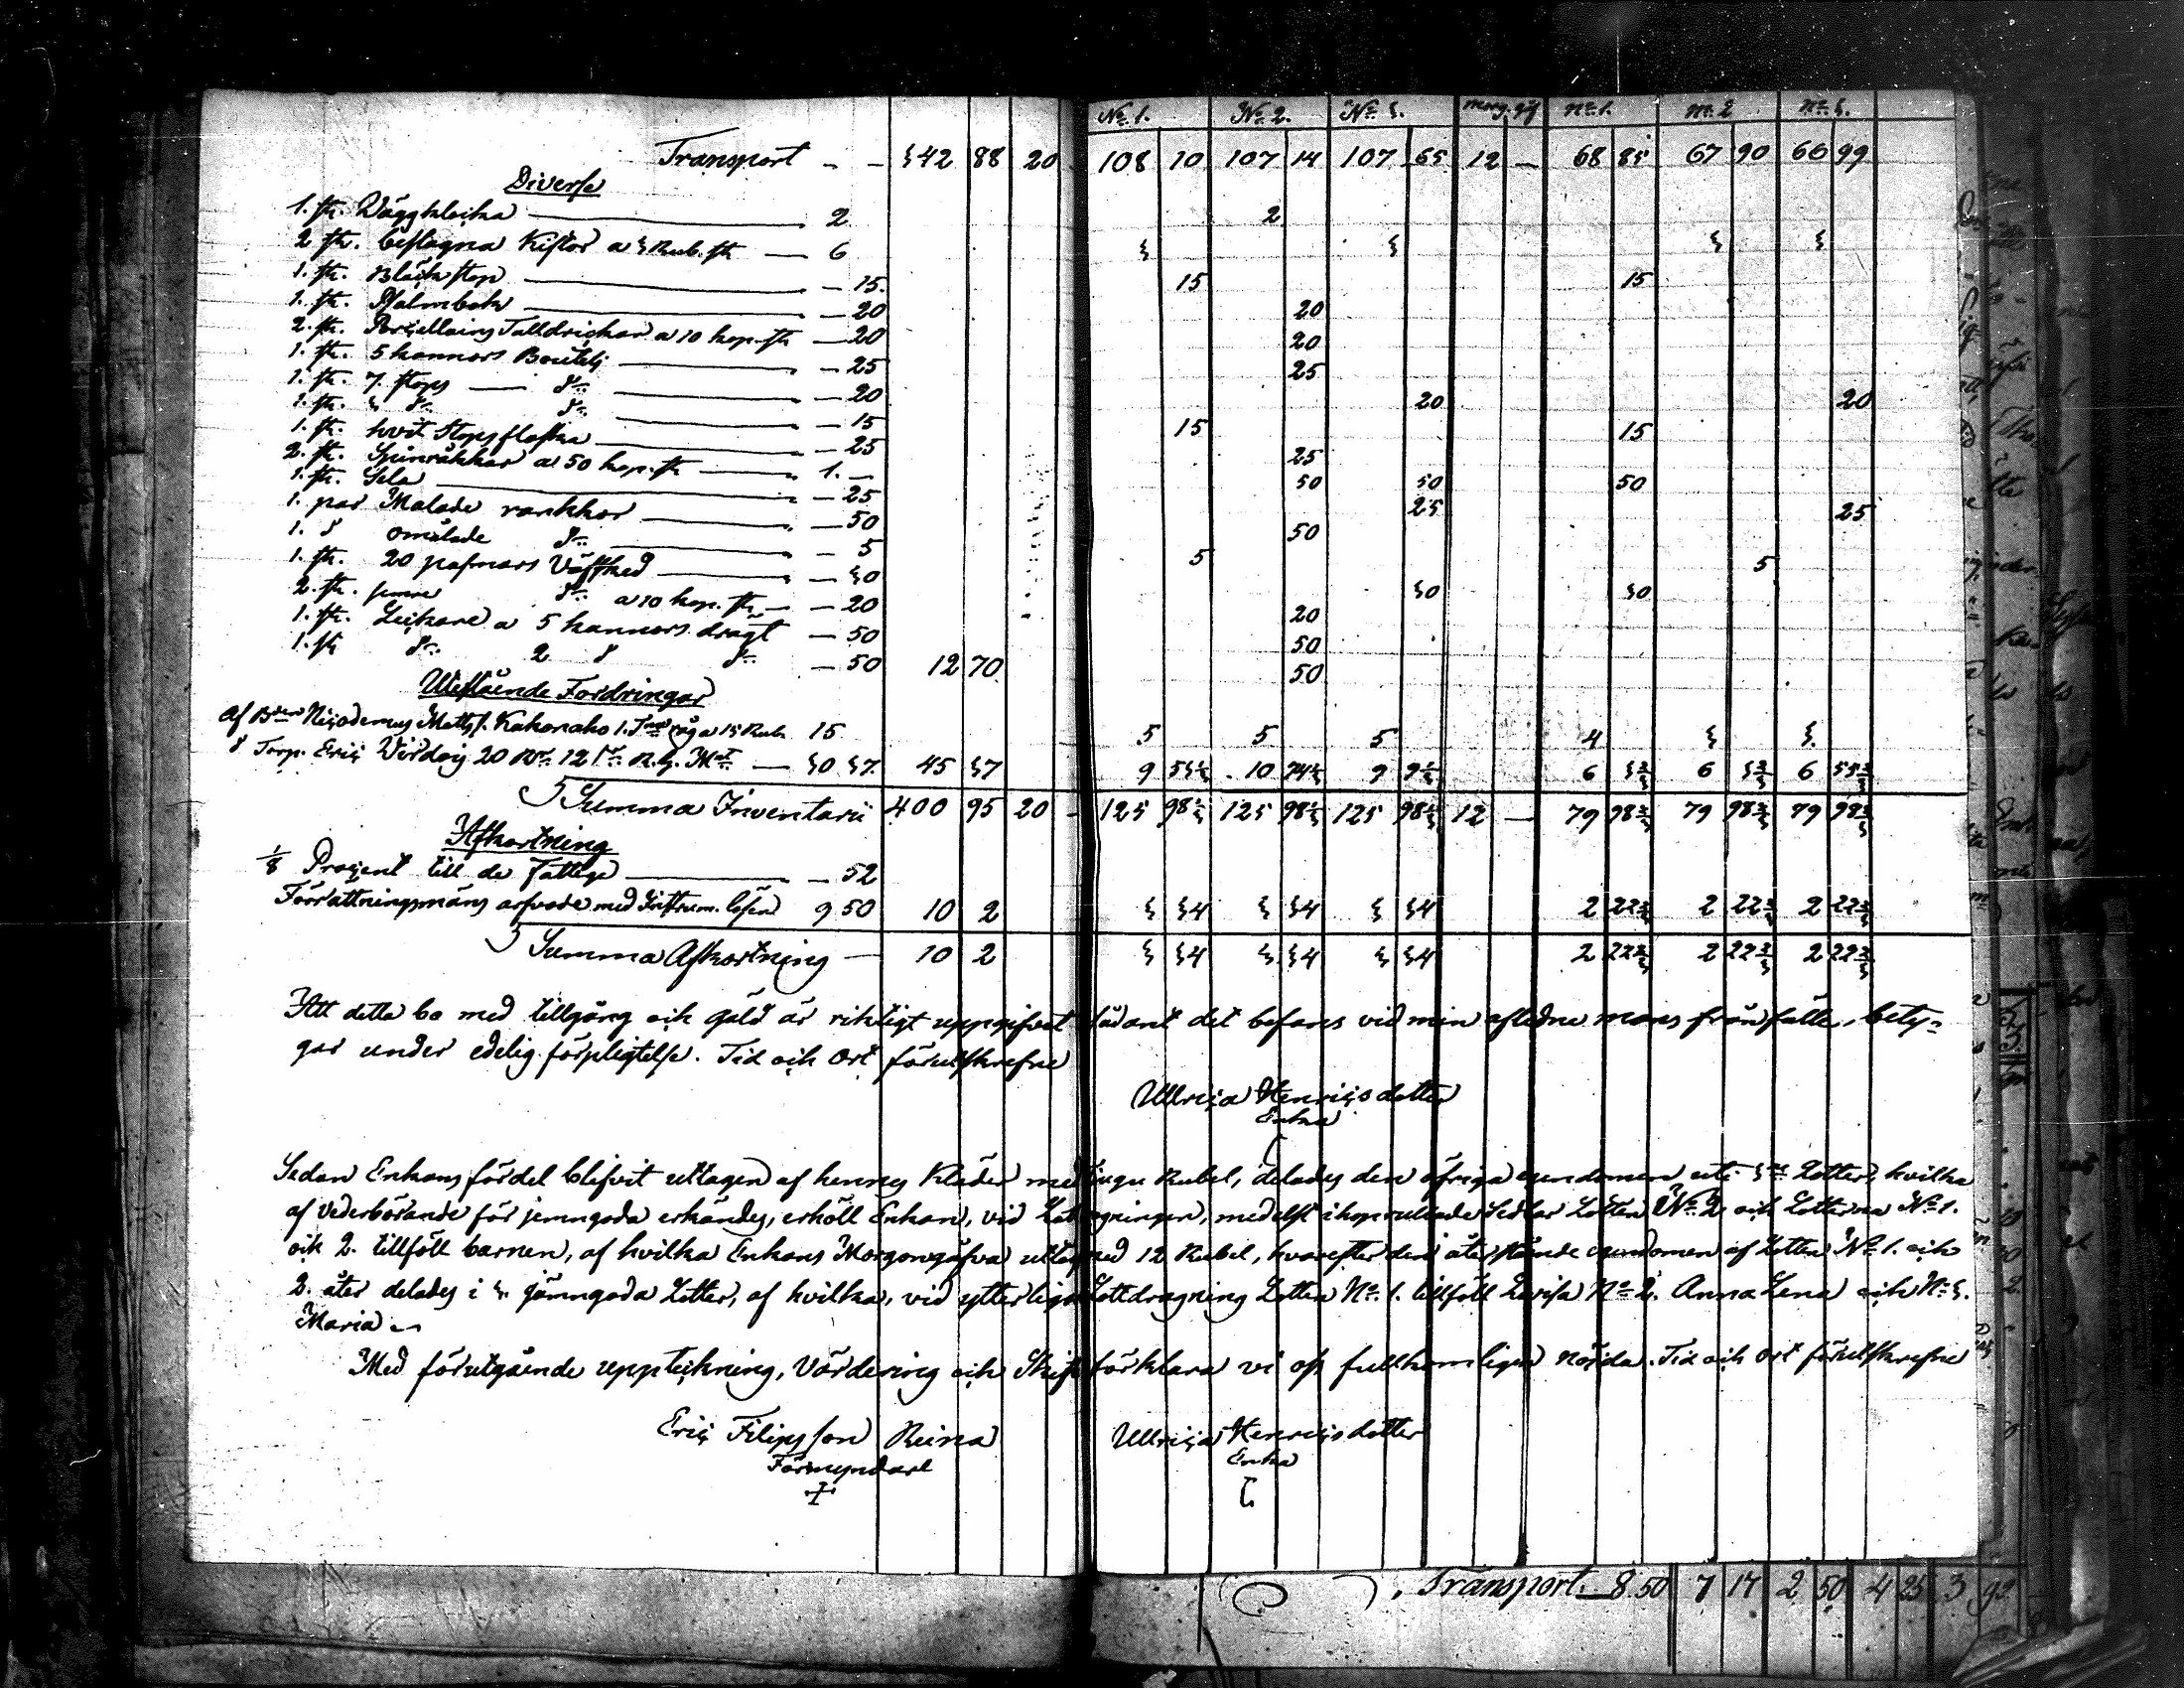 No 1. No 2. No 3. Morg. gåf No 1. No 2 No 3.
Transport - - 342 88 20 108 10 107 14 107 65 12 — 68 85 67 90 66 99
Diverse
1. st. Väggklocka — 2 2
2 st. beslagna Kistor a 3 Rub. st — 6 3 3 3 3
1. st. Bläckstop — 15. 15 15
1. st. Psalmbok — 20 20
2. st. Porcellains Talldrickar a 10 kop. st — 20 20
1. st. 5 kannors Boutelj — 25 25
1. st. 7. stops — do — 20 20 20
1. st. 3 do do — 15 15 15
1. st. hvit Stops flaska — 25 25
2. st. Spinråkkar a 50 kop. st — 1. — 50 50 50
1. st. Sela — 25 25 25
1. par Målade vankkor — 50 50
1. d omålade do — 5 5 5
1. st. 20 pasmars Väfsked — 30 30 30
2. st. do a 10 kop. st — 20 20
1. st. Leikare a 5 kannors drägt — 50 50
1. st do 2 d do — 50 12 70 50
Utestående Fordringar
Af Bden Nicodemus Matts s. Kakonaho 1. Tna råg a 15 Rub. 15 5 5 5 4 3 3.
d Torp. Eric Virdog 20 Rdr 12 sr R.g. Mt — 30 37. 45 37 9 53⅓ 10 74⅓ 9 9⅓ 6 3⅔ 6 3⅔ 6 55⅔
Summa Inventarii 400 95 20 125 98⅓ 125 98⅓ 125 98⅓ 12 — 79 98⅔ 79 98⅔ 79 98⅔
Afkortning
1/8 Procent till de Fattige — 52
Förrättningsmäns arfvode med Instrum. lösen 9 50 10 2 3 34 3 34 3 34 2 22⅔ 2 22⅔ 2 22⅔
Summa Afkortning — 10 2 3 34 3 34 3 34 2 22⅔ 2 22⅔ 2 22⅔
Att detta bo med tillgång och gäld är riktigt uppgifvet sådant det befans vid min afledne mans frånfälle, bety-
gar under edelig förpligtelse. Tid och Ort förutskrefne
Ullrica Henricsdotter
Enka
Sedan Enkans fördel blifvit uttagen af hennes Kläder med tjugu Rubel, delades den öfriga egendomen uti 3ne Lotter, hvilka
af vederbörande för jemngoda erkändes, erhöll Enkan, vid Lottdragningen, medelst ihoprullade Sedlar Lotten No 2 och Lotterna No 1.
och 2. tillföll barnen, af hvilka Enkans Morgongåfva uttogs med 12 Rubel, hvarefter den återstående egendomen af Lotten No 1. och
2. åter delades i 3. jämngoda Lotter, af hvilka, vid ytterligare Lottdragning Lotten No. 1. tillföll Lovisa No 2. Anna Lena och No 3.
Maria.
Med förutgående uppteckning, Värdering och Skifte förklara vi oss fullkomligen nöjda. Tid och Ort förutskrefne
Eric Filipsson Reina Ullrica Henricsdotter
Förmyndare Enka
Transport. 8.50 7 17 2 50 4 25 3 92